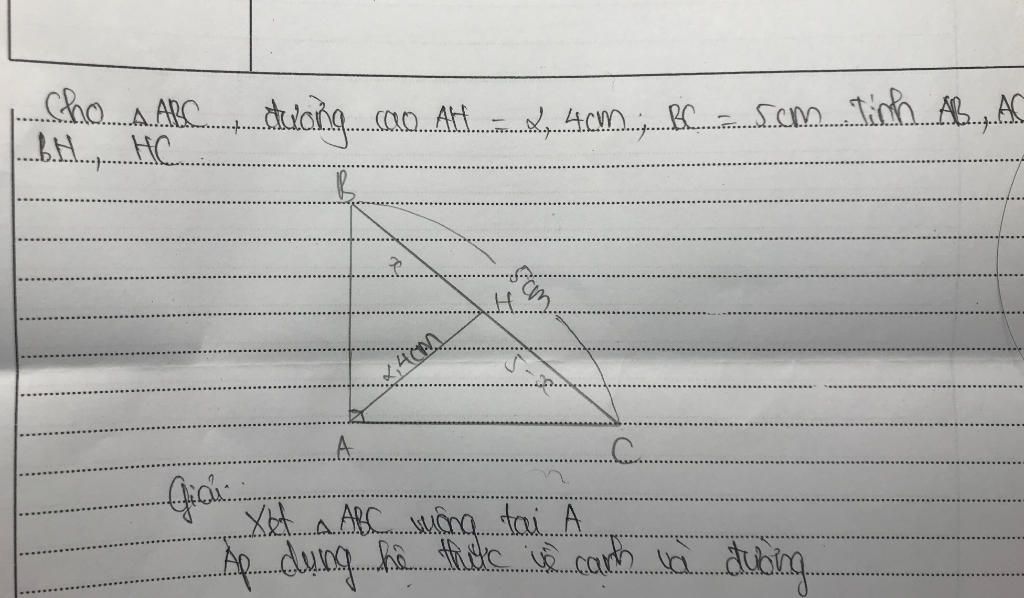 Cho △ABC, đường cao AH = 2,4cm; BC = 5cm. Tính AB, AC
BH, HC
B
x
5cm
H
2,4cm
5-x
A
C
Giải:
Xét △ABC vuông tại A
Áp dụng hệ thức về cạnh và đường